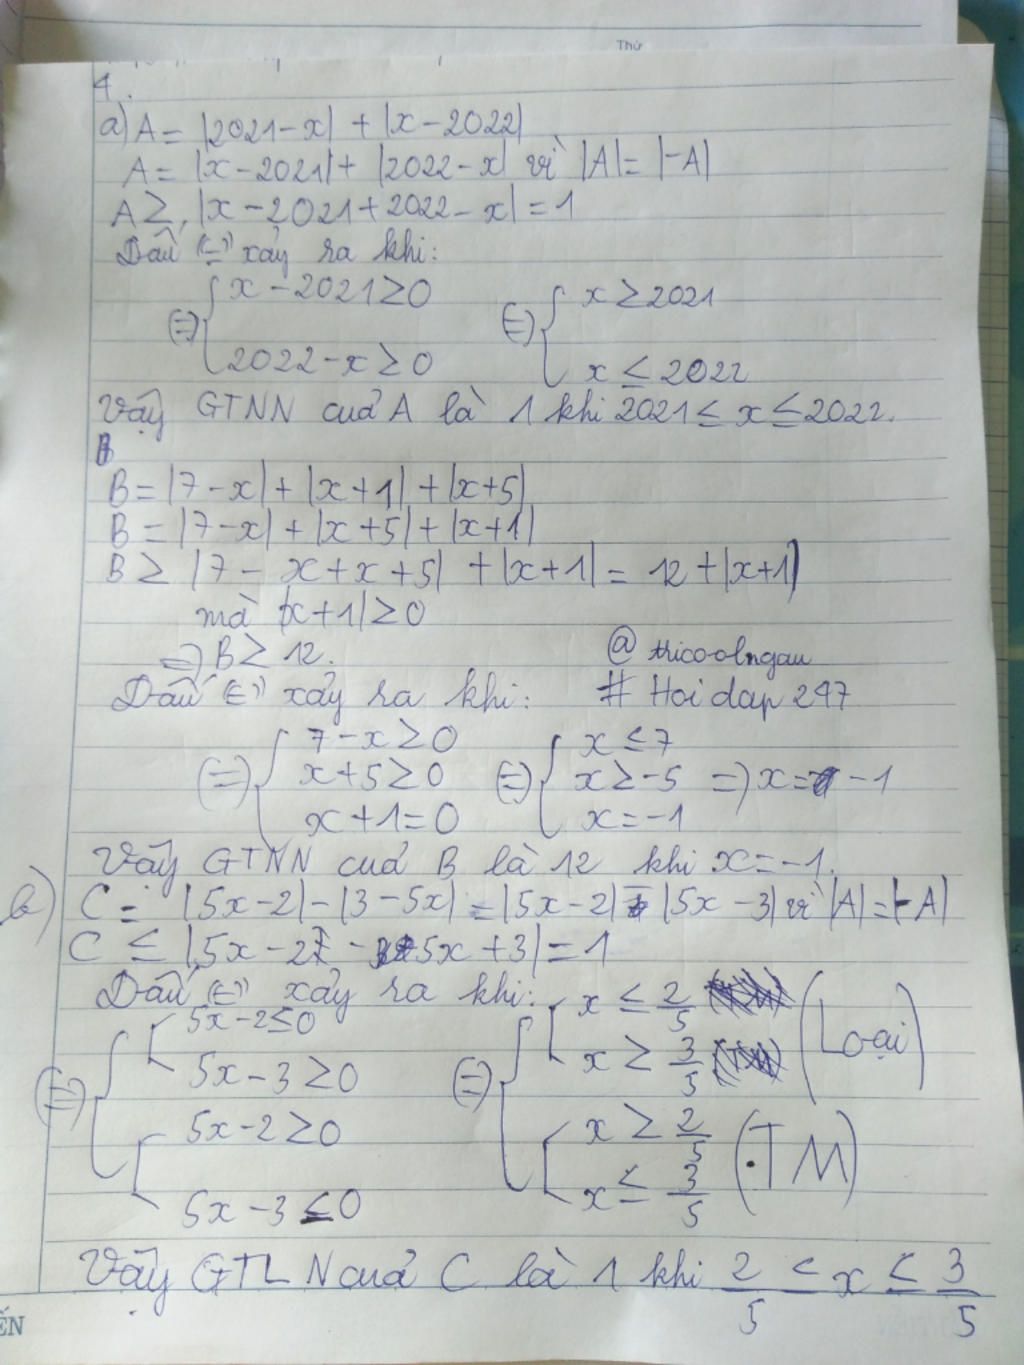 Thứ
4.
a) A = |2021 - x| + |x - 2022|
A = |x - 2021| + |2022 - x| vì |A| = |-A|
A ≥ |x - 2021 + 2022 - x| = 1
Dấu "=" xảy ra khi:
(=) { x - 2021 ≥ 0 (=) { x ≥ 2021
2022 - x ≥ 0 x ≤ 2022
Vậy GTNN của A là 1 khi 2021 ≤ x ≤ 2022.
B = |7 - x| + |x + 1| + |x + 5|
B = |7 - x| + |x + 5| + |x + 1|
B ≥ |7 - x + x + 5| + |x + 1| = 12 + |x + 1|
mà |x + 1| ≥ 0
=) B ≥ 12.
@ tricoolngau
Dấu "=" xảy ra khi: # Hoidap 247
(=) { 7 - x ≥ 0 (=) { x ≤ 7
x + 5 ≥ 0 x ≥ -5 =) x = -1
x + 1 = 0 x = -1
Vậy GTNN của B là 12 khi x = -1.
b) C = |5x - 2| - |3 - 5x| = |5x - 2| - |5x - 3| vì |A| = |-A|
C ≤ |5x - 2 - 5x + 3| = 1
Dấu "=" xảy ra khi:
(=) { [ 5x - 2 ≤ 0 (=) { [ x ≤ 2/5
5x - 3 ≥ 0 x ≥ 3/5 (Loại)
[ 5x - 2 ≥ 0 [ x ≥ 2/5
5x - 3 ≤ 0 x ≤ 3/5 (TM)
Vậy GTLN của C là 1 khi 2/5 ≤ x ≤ 3/5
ẾN